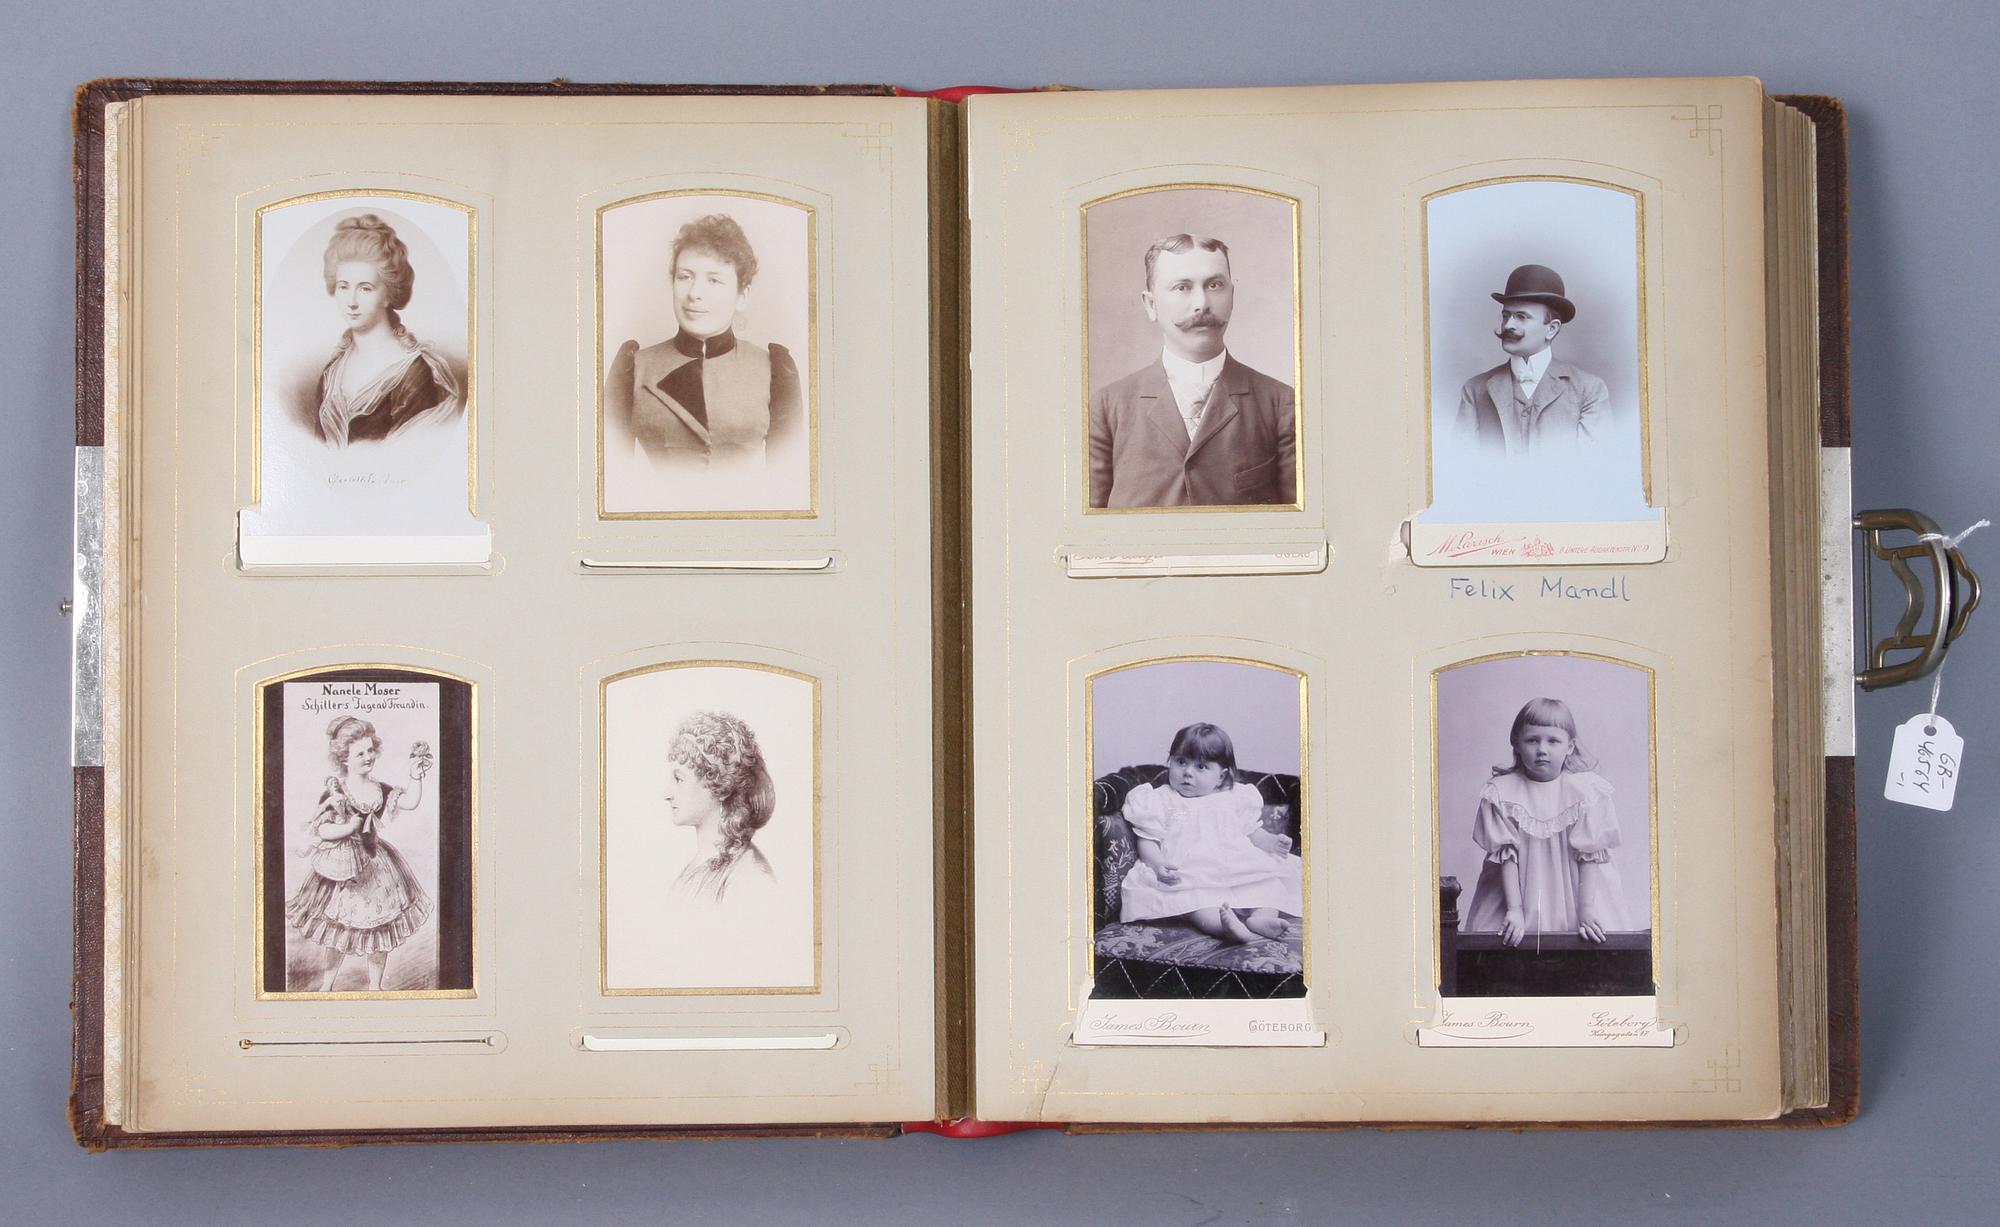 Nanele Moser
Schillers Jugend Freundin.
M. Larisch
WIEN
Felix Mandl
James Bourn GÖTEBORG
James Bourn Göteborg
Kungsgatan 17
GR-
48564
-1